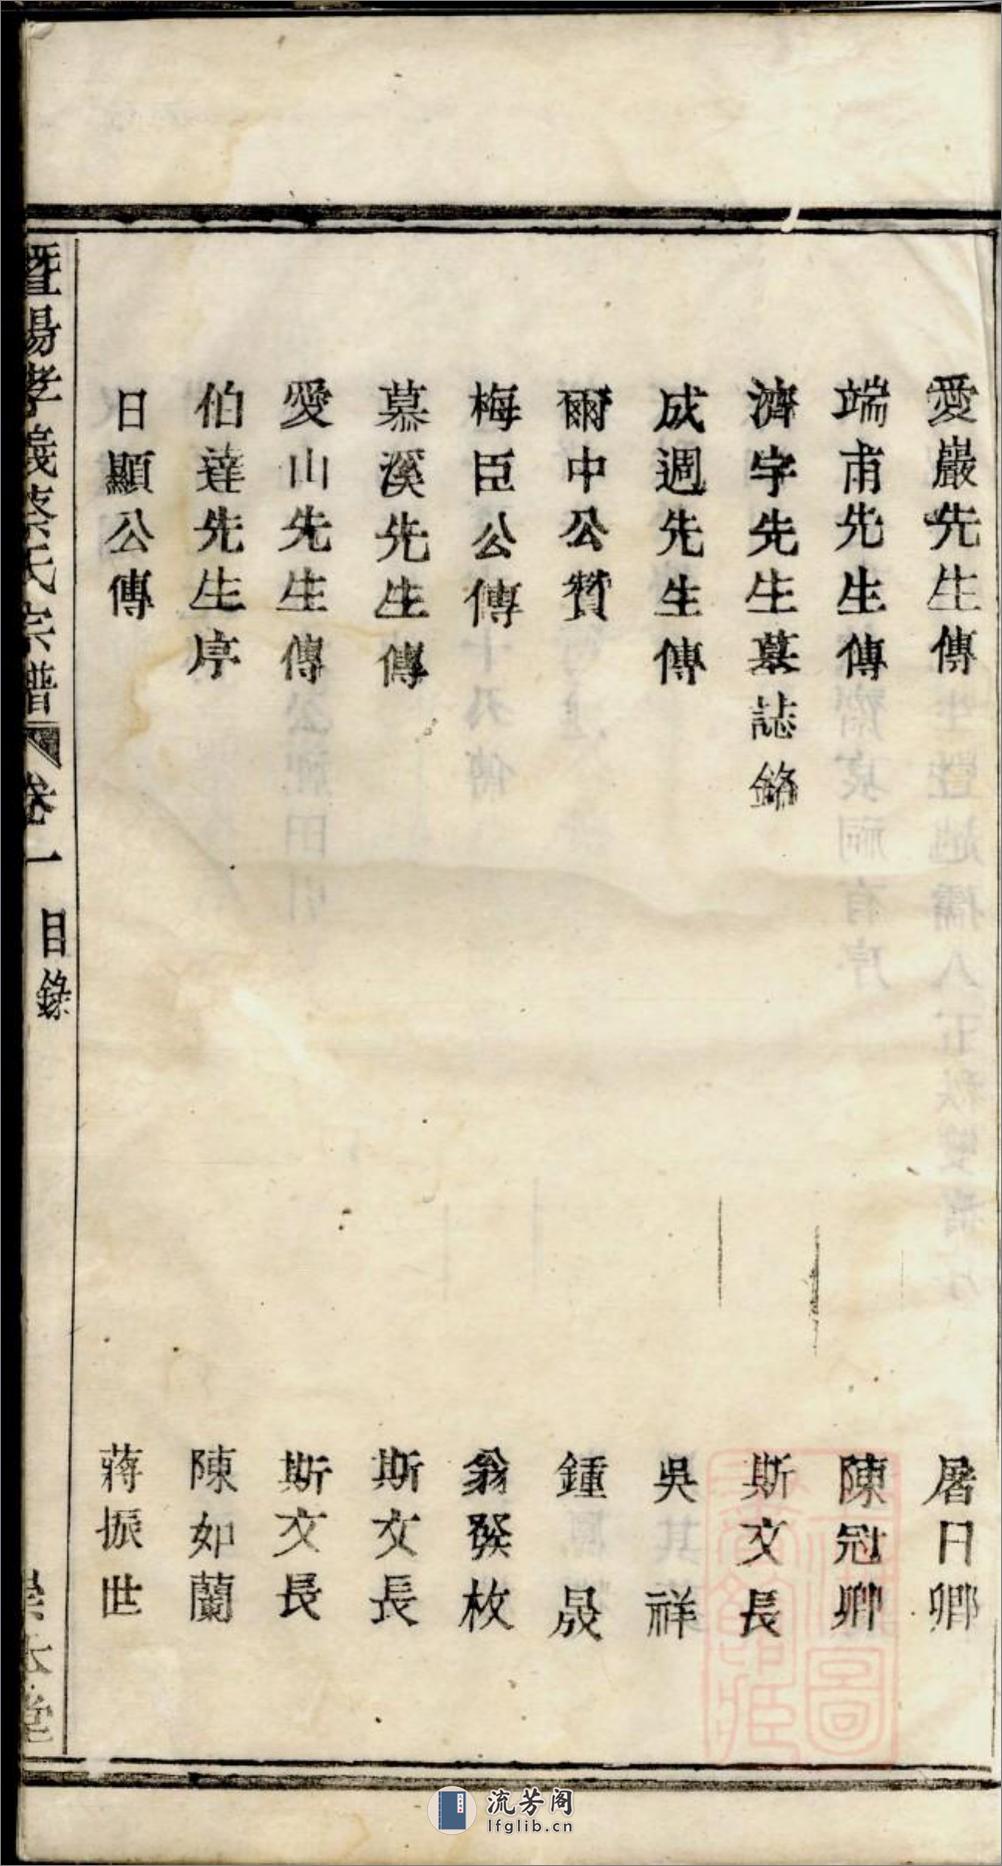 愛巖先生傳 屠日卿
端甫先生傳 陳冠卿
濟宇先生墓誌銘 斯文長
成週先生傳 吳其祥
爾中公贊 鍾晟
梅臣公傳 翁發枚
慕溪先生傳 斯文長
愛山先生傳 斯文長
伯達先生序 陳如蘭
日顯公傳 蔣振世
暨陽孝義蔡氏宗譜 卷一 目錄
堂
流芳阁
lfglib.cn